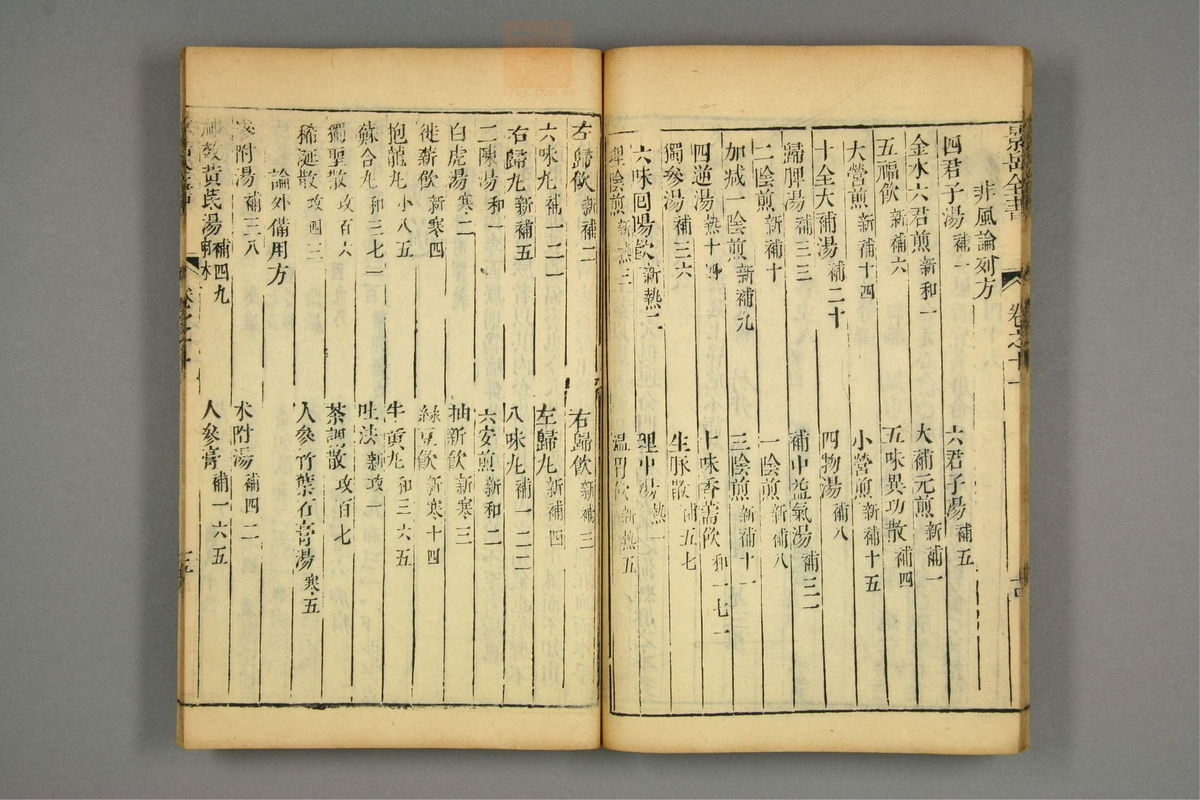 景岳全書 卷之十一
非風論列方
四君子湯 補一 六君子湯 補五
金水六君煎 新和一 大補元煎 新補一
五福飲 新補六 五味異功散 補四
大營煎 新補十四 小營煎 新補十五
十全大補湯 補二十 四物湯 補八
歸脾湯 補三二 補中益氣湯 補三一
二陰煎 新補十 一陰煎 新補八
加减一陰煎 新補九 三陰煎 新補十一
四逆湯 熱十四 十味香薷飲 和一七一
獨參湯 補三六 生脉散 補五七
六味回陽飲 新熱二 理中湯 熱一
理陰煎 新熱三 温胃飲 新熱五
左歸飲 新補二 右歸飲 新補三
六味丸 補一二一 左歸丸 新補四
右歸丸 新補五 八味丸 補一二二
二陳湯 和一 六安煎 新和二
白虎湯 寒二 抽薪飲 新寒三
徙薪飲 新寒四 綠豆飲 新寒十四
抱龍丸 小八五 牛黄丸 和三六五
蘇合丸 和三七一 吐法 新攻一
獨聖散 攻百六 茶調散 攻百七
稀涎散 攻四三 人參竹葉石膏湯 寒五
論外備用方
參附湯 補三八 术附湯 補四二
神效黄芪湯 補四九 人參膏 補一六五